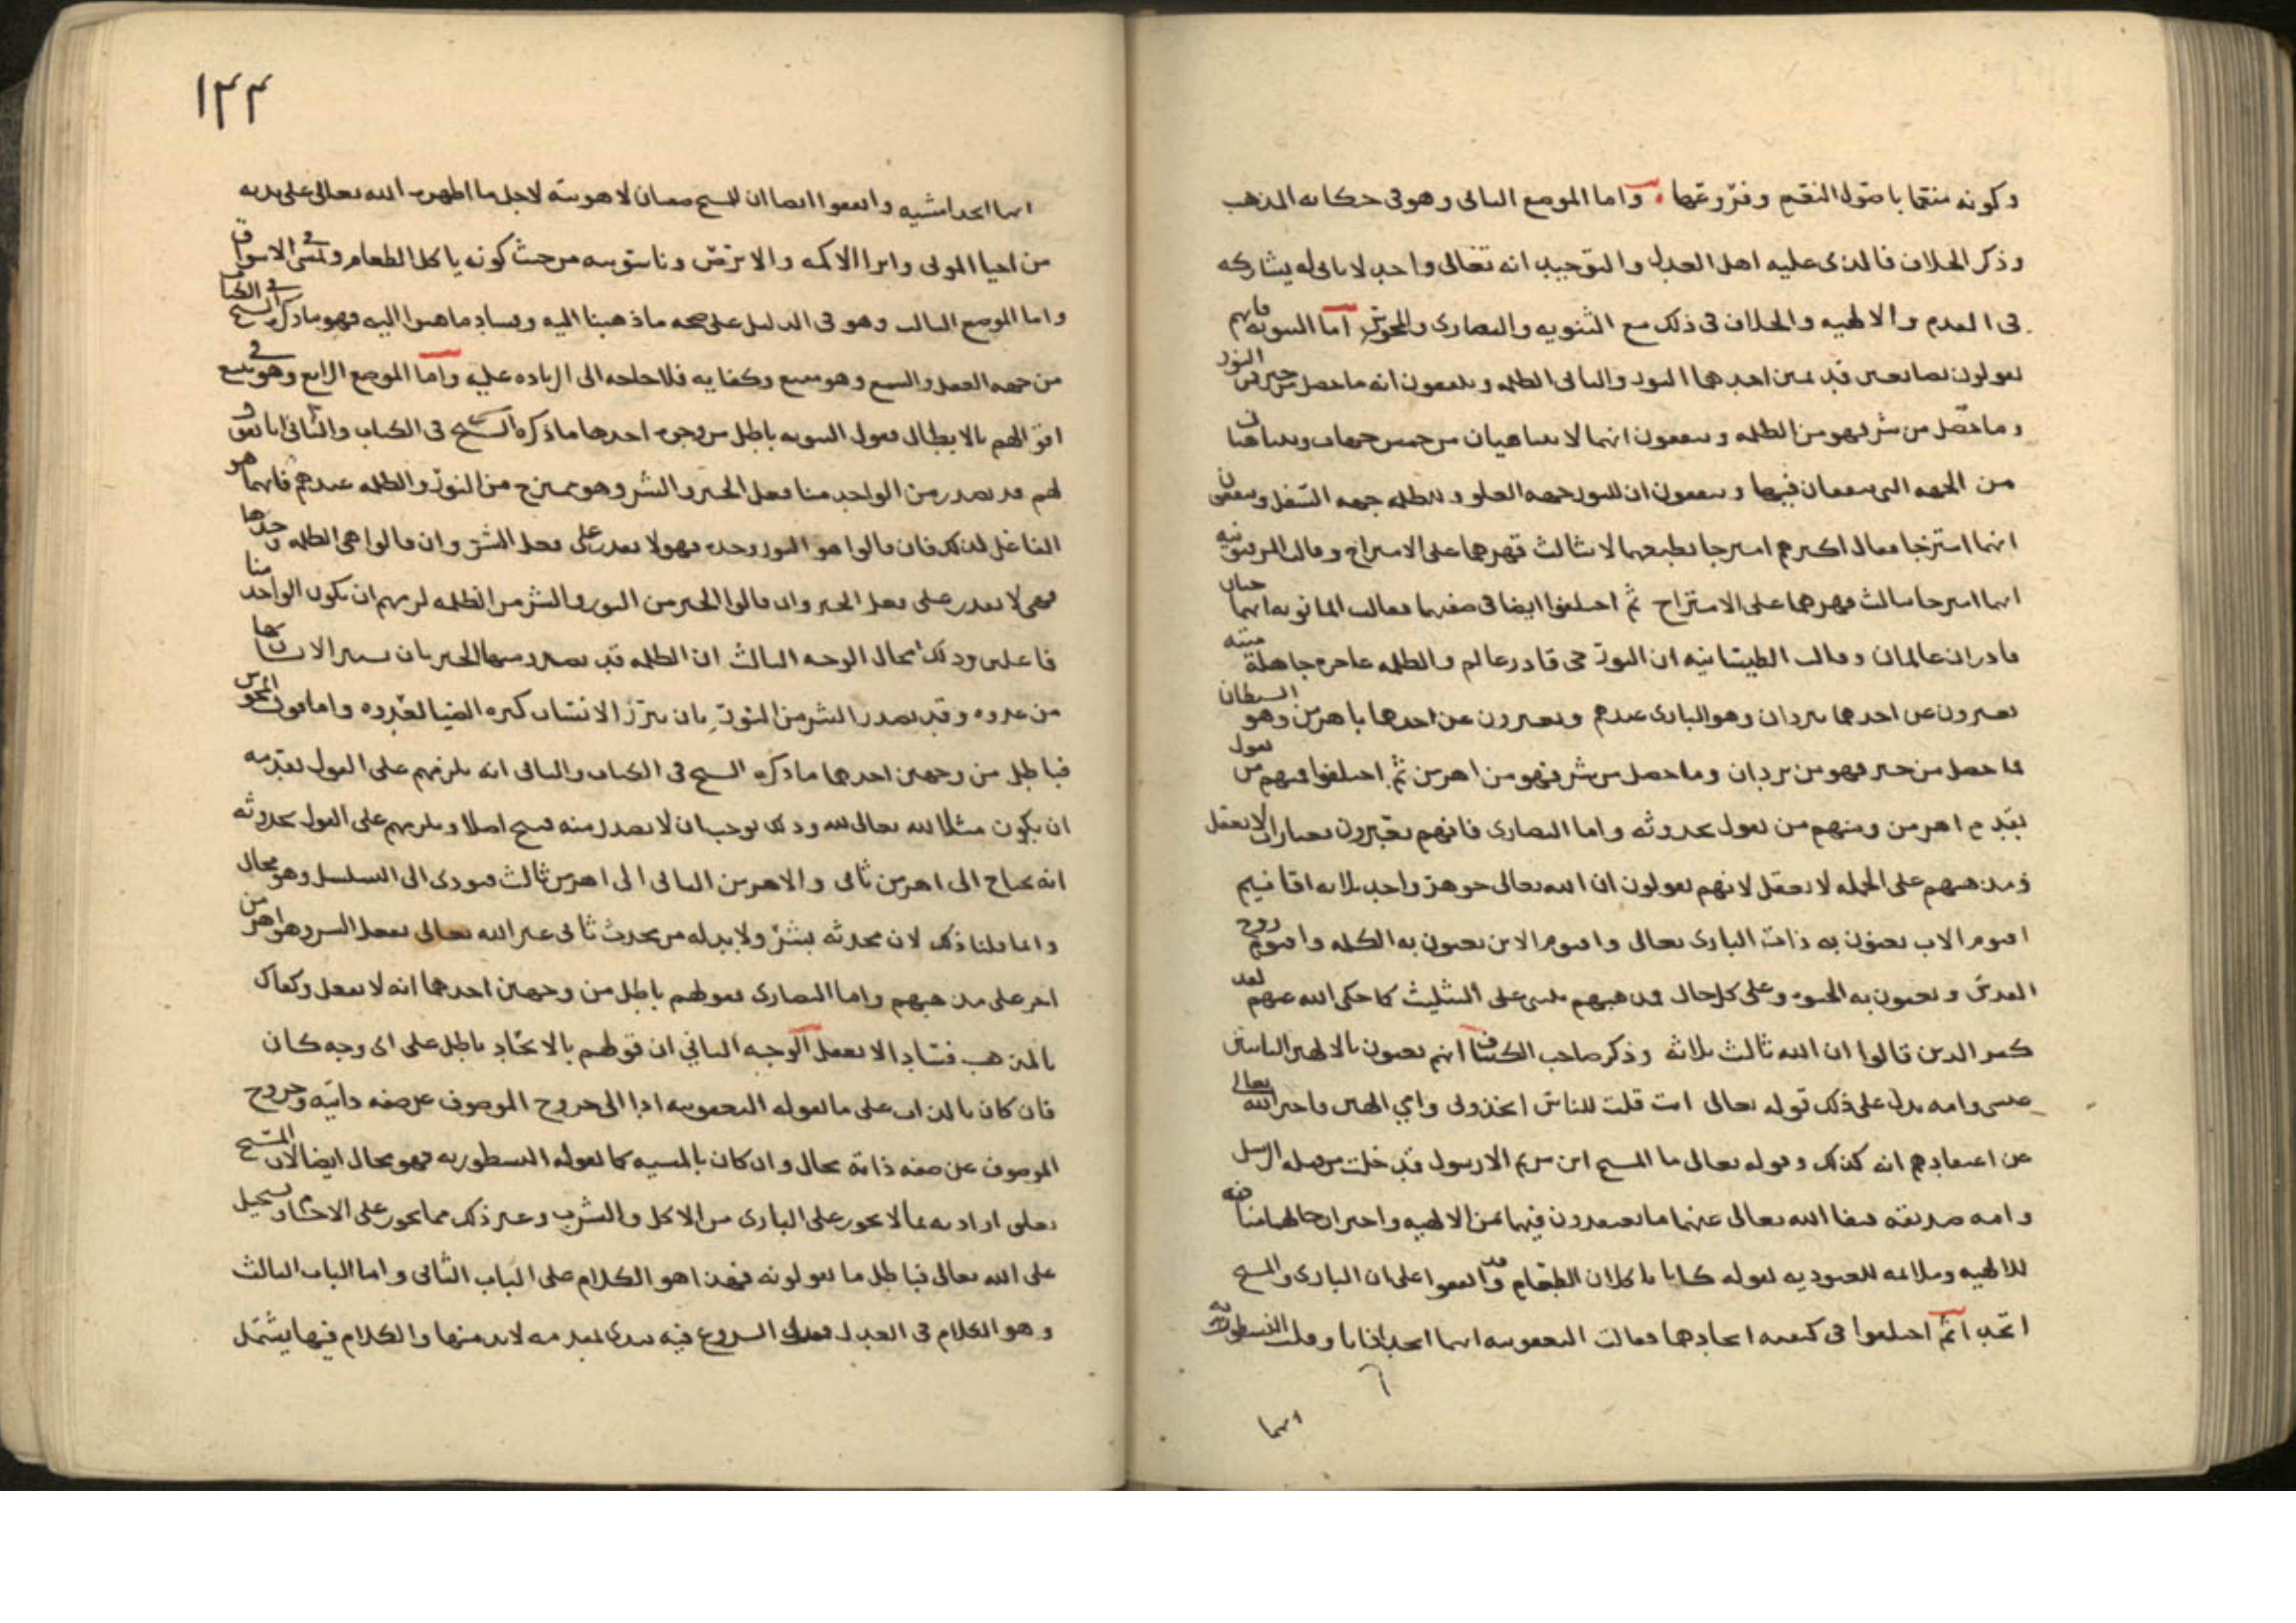 وكونه منعما باصول النعم وفروعها واما الموضع الثاني وهو في حكاية المذهب
وذكر الخلاف فالذي عليه اهل العدل والتوحيد انه تعالى واحد لا ثاني له يشاركه
في القدم والالهيه والخلاف في ذلك مع الثنويه والنصارى والمجوس اما الثنويه فانهم
يقولون بصانعين قديمين احدهما النور والثاني الظلمه ويقولون انه ما حصل من خير فمن النور
وما حصل من شر فهو من الظلمه ويتفقون انهما لا يتناهيان من خمس جهات ويتناهيان
من الجهه التي يلتقيان فيها ويتفقون ان للنور جهه العلو وللظلمه جهه السفل ويتفقون
انهما امتزجا فقال اكثرهم امتزجا بطبعهما لا بثالث قهرهما على الامتزاج وقالت المرقيونيه
انهما امتزجا بثالث قهرهما على الامتزاج ثم اختلفوا ايضا في صفتهما فقالت المانويه انهما حيان
قادران عالمان وقالت الديصانيه ان النور حي قادر عالم والظلمه عاجزه جاهله ميته
يعبرون عن احدهما بيزدان وهو الباري عندهم ويعبرون عن احدهما باهرمن وهو الشيطان
فما حصل من خير فهو من يزدان وما حصل من شر فهو من اهرمن ثم اختلفوا فمنهم من يقول
بقدم اهرمن ومنهم من يقول بحدوثه واما النصارى فانهم يعبرون بعبارات لا تعقل
ومذهبهم على الجمله لا يعقل لانهم يقولون ان الله تعالى جوهر واحد ثلاثه اقانيم
اقنوم الاب يعنون به ذات الباري تعالى واقنوم الابن يعنون به الكلمه واقنوم روح
القدس ويعنون به الحيوه وعلى كل حال فمذهبهم مبني على التثليث كما حكى الله عنهم لقد
كفر الذين قالوا ان الله ثالث ثلاثه وذكر صاحب الكشاف انهم يعنون بالالهين الباقيين
عيسى وامه يدل على ذلك قوله تعالى انت قلت للناس اتخذوني وامي الهين فاخبر الله تعالى
عن اعتقادهم انه كذلك وقوله تعالى ما المسيح ابن مريم الا رسول قد خلت من قبله الرسل
وامه صديقه فنفا الله تعالى عنهما ما يعتقدون فيهما من الالهيه واخبر ان حالهما منافيه
للالهيه وملائمه للعبوديه لقوله كانا ياكلان الطعام وقد اتفقوا على ان الباري والمسيح
اتحدا ثم اختلفوا في كيفيه اتحادهما فقالت اليعقوبيه انهما اتحدا ذاتا وقالت النسطوريه
انهما
١٢٢
انهما اتحدا مشيه واتفقوا ايضا ان للمسيح معان لاهوتيه لاجل ما اظهره الله تعالى على يديه
من احيا الموتى وابرا الاكمه والابرص وناسوتيه من حيث كونه ياكل الطعام ويمشي في الاسواق
واما الموضع الثالث وهو في الدليل على صحه ما ذهبنا اليه وفساد ما ذهبوا اليه فهو ما ذكره الشيخ في الكتاب
من جهه العقل والسمع وهو مقنع وكفايه فلا حاجه الى الزياده عليه واما الموضع الرابع وهو في تتبع
اقوالهم بالابطال فقول الثنويه باطل من وجوه احدها ما ذكره الشيخ في الكتاب والثاني انا نقول
لهم قد يصدر من الواحد منا فعل الخير والشر وهو ممتزج من النور والظلمه عندهم فايهما هو
الفاعل لذلك فان قالوا هو النور وحده فهو لا يقدر على فعل الشر وان قالوا هي الظلمه وحدها
فهي لا تقدر على فعل الخير وان قالوا الخير من النور والشر من الظلمه لزمهم ان يكون الواحد منا
فاعلين وذلك محال الوجه الثالث ان الظلمه قد يصدر منها الخير بان يستر الانسان بها
من عدوه وقد يصدر الشر من النور بان يبرز الانسان كثره الضيا لعدوه واما قول المجوس
فباطل من وجهين احدهما ما ذكره الشيخ في الكتاب والثاني انه يلزمهم على القول بقدمه
ان يكون مثلا لله تعالى وذلك يوجب ان لا يصدر منه قبيح اصلا ويلزمهم على القول بحدوثه
انه يحتاج الى اهرمن ثاني والاهرمن الثاني الى اهرمن ثالث فيودي الى التسلسل وهو محال
وانما قلنا ذلك لان محدثه بشر ولا بد له من محدث ثاني غير الله تعالى يفعل الشر وهو اهرمن
اخر على مذهبهم واما النصارى فقولهم باطل من وجهين احدهما انه لا يعقل وكفاك
بالمذهب فسادا الا يعقل الوجه الثاني ان قولهم بالاتحاد باطل على اي وجه كان
فان كان بالذات على ما تقوله اليعقوبيه ادا الى خروج الموصوف عن صفه ذاتيه وخروج
الموصوف عن صفه ذاته محال وان كان بالمشيه كما تقوله النسطوريه فهو محال ايضا لان المسيح
تعلق ارادته بما لا يجوز على الباري من الاكل والشرب وغير ذلك مما يجوز على الاجسام ويستحيل
على الله تعالى فباطل ما يقولونه فهذا هو الكلام على الباب الثاني واما الباب الثالث
وهو الكلام في العدل فقبل الشروع فيه نبدي بمقدمه لا بد منها والكلام فيها يشتمل